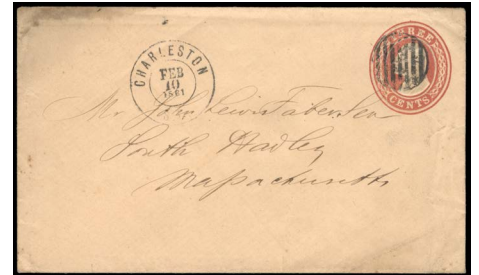 CHARLESTON
FEB
10
1861
THREE
CENTS
Mr. John Lewis Faber Sen
South Hadley
Massachusetts